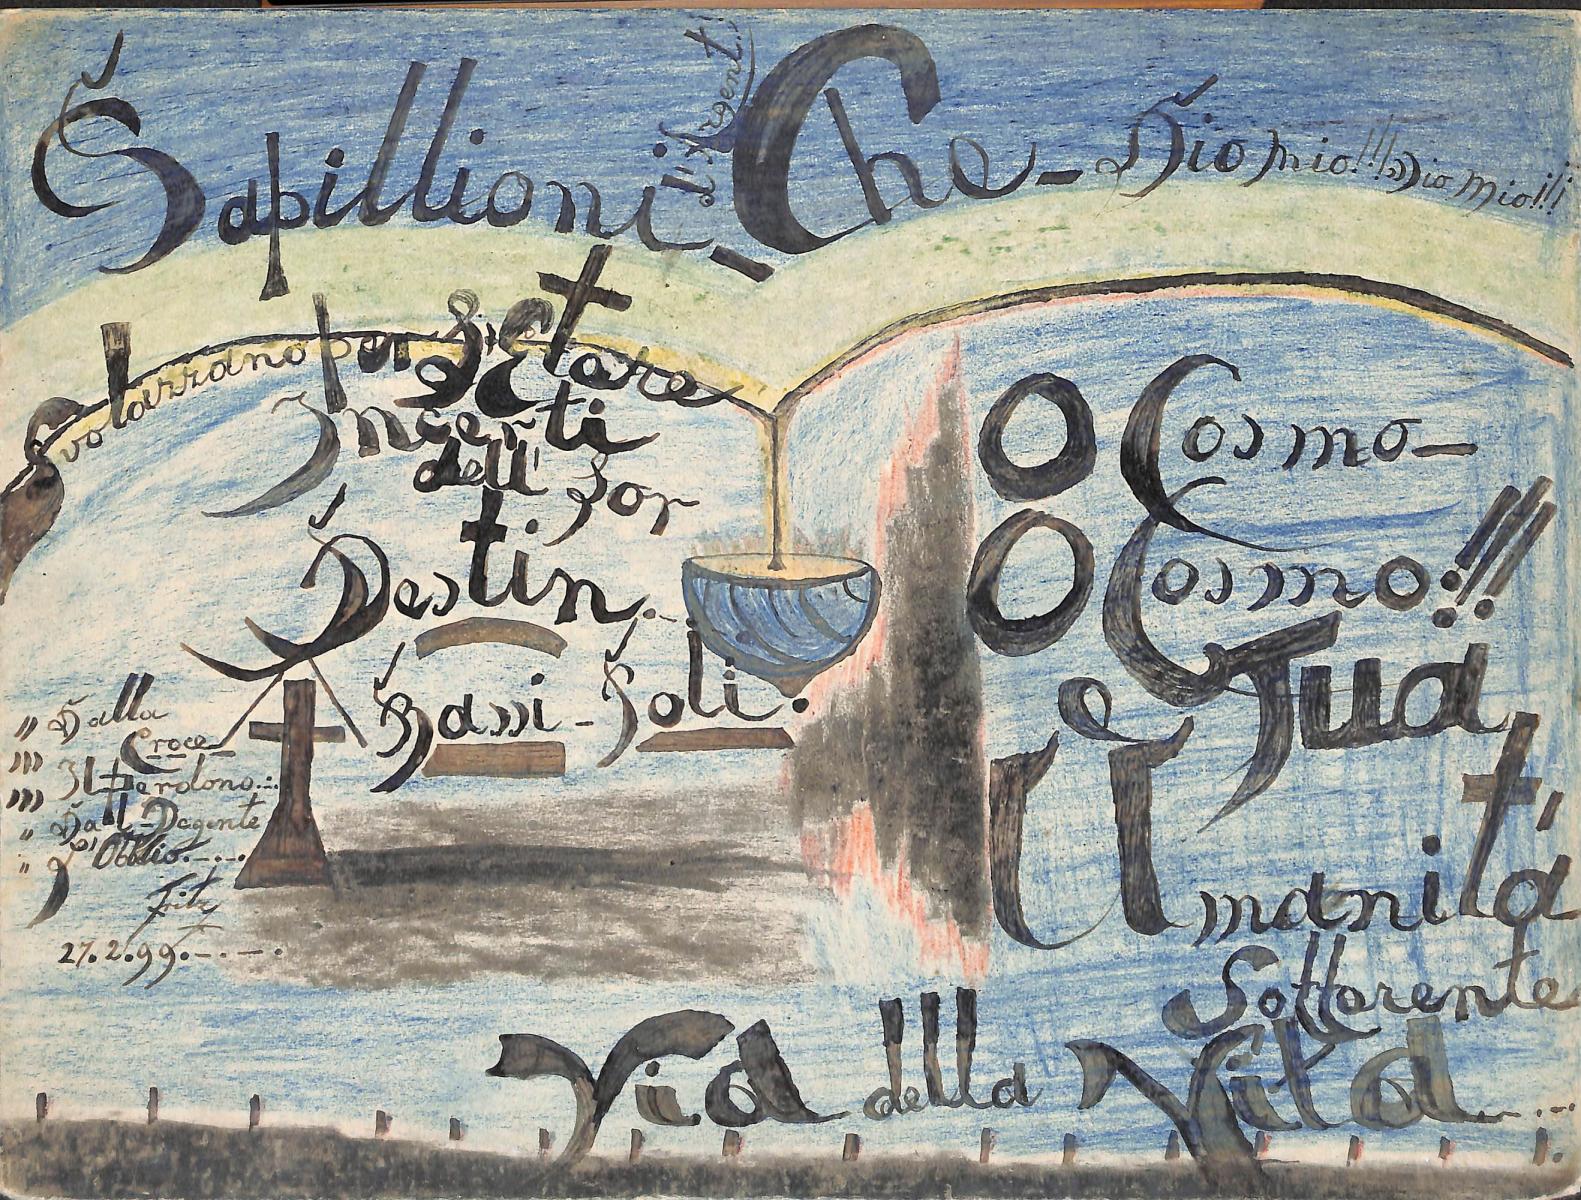 Sapillioni - Che - Dio mio!!! Dio mio!!!
e l'Argent!
Svolazzano per
Incerti
dell' Sor
Destin..
Bassi - Soli.
O Cosmo -
O Cosmo!!!
e Tua
Umanità
Sofferente
" Dalla
Croce
Il Perdono...
" Dall - Degente
" L'Oblio.-.-..
Fritz
27.2.99.-.-.
Via della Vita